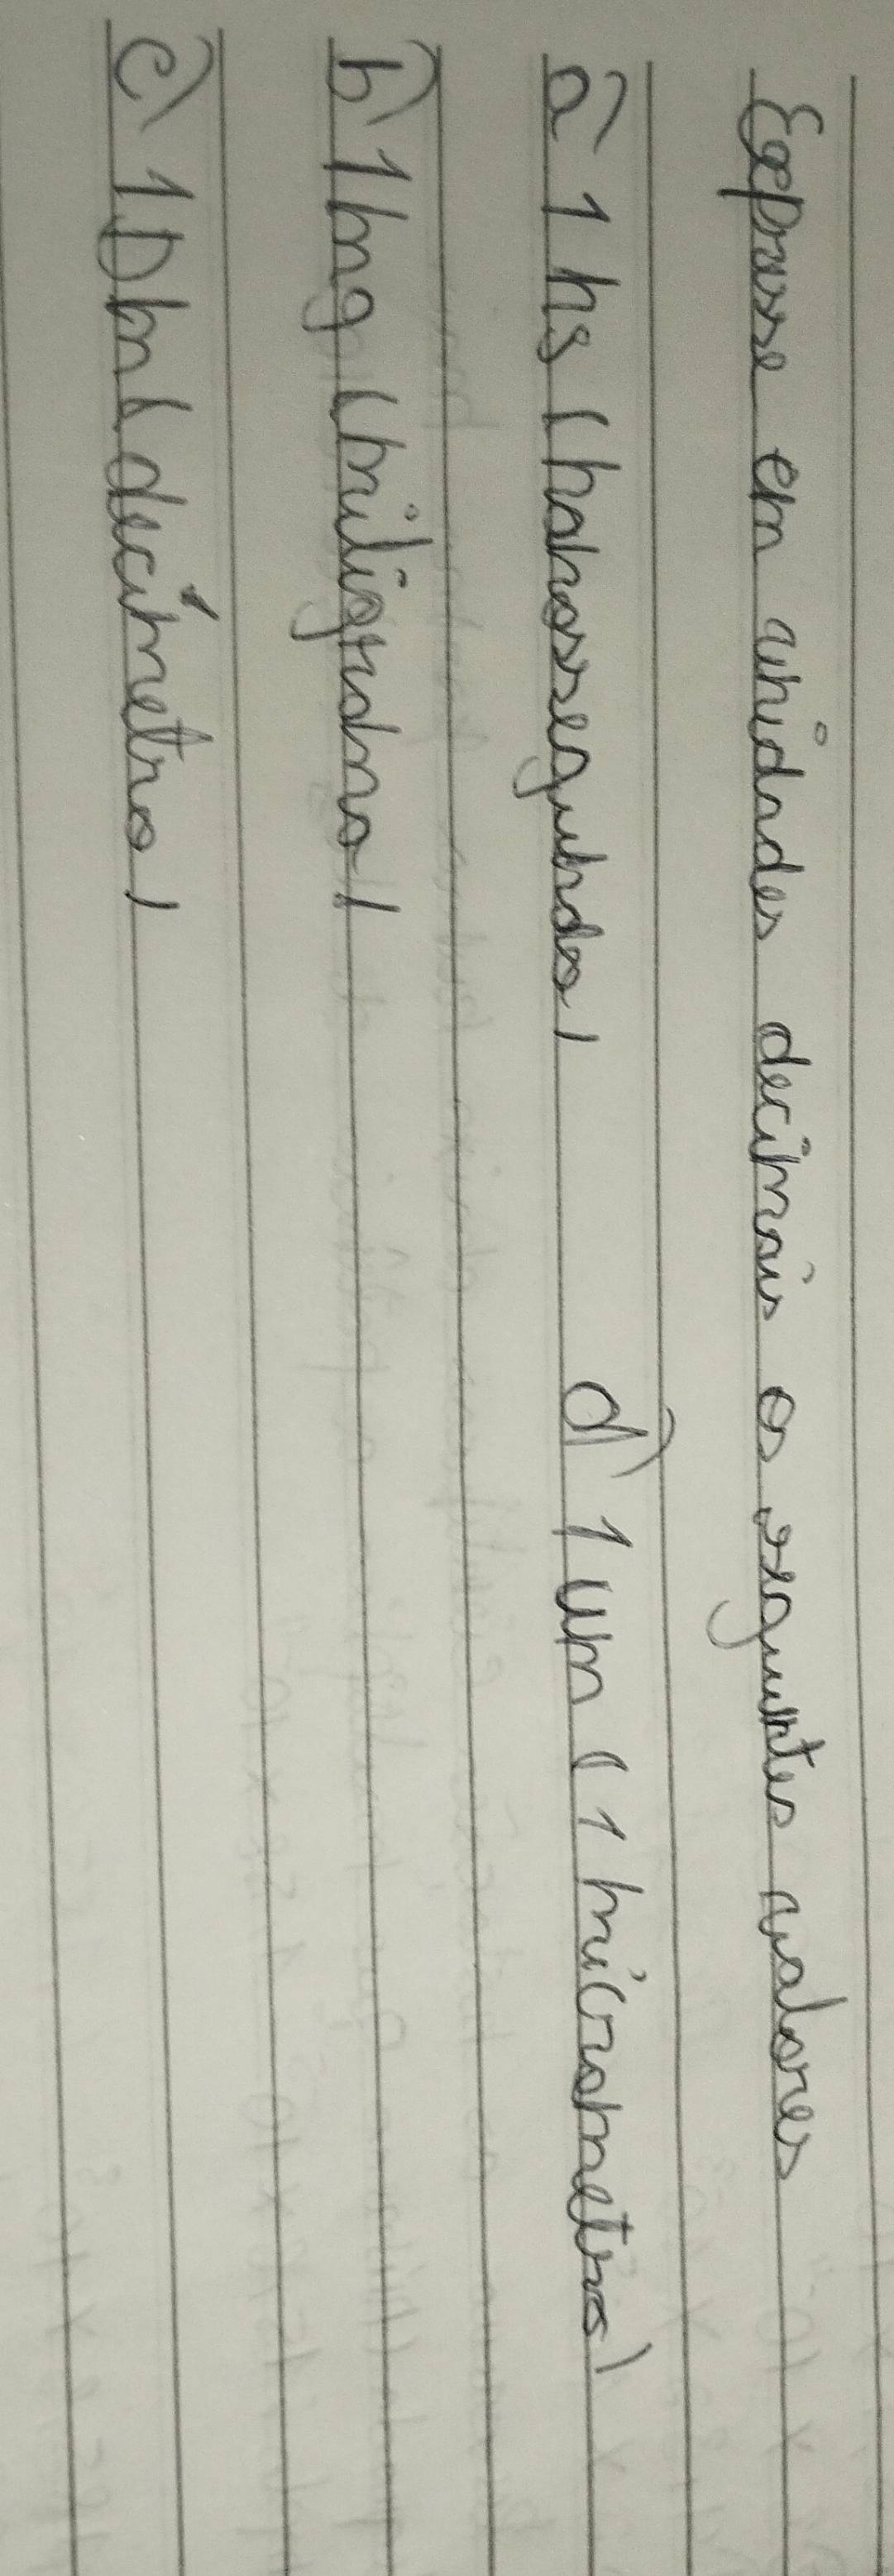 Expresse em unidades decimais os seguintes valores
a) 1 ns (nanossegundo) d) 1 um (1 micrometro)
b) 1 mg (miligrama)
c) 1 Dm (decímetro)